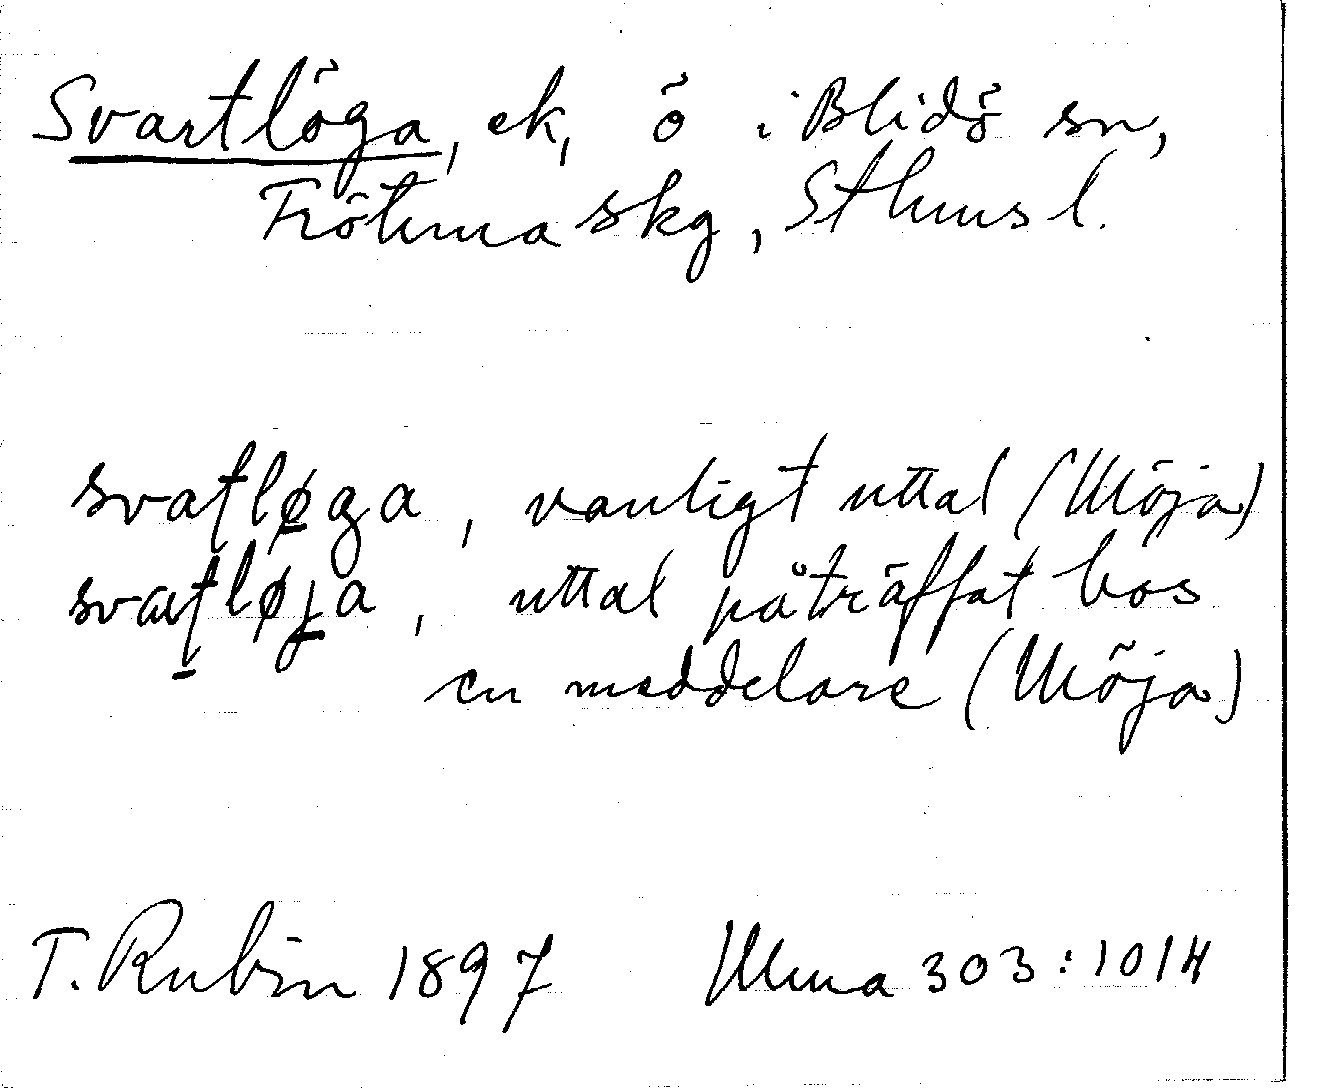 Svartlöga, ek, ö i Blidö sn,
Frötuna skg, Sthms l.
svaṭløga, vanligt uttal (Möja)
svaṭløja, uttal påträffat hos
en meddelare (Möja)
T. Rubin 1897 Ulma 303:1014